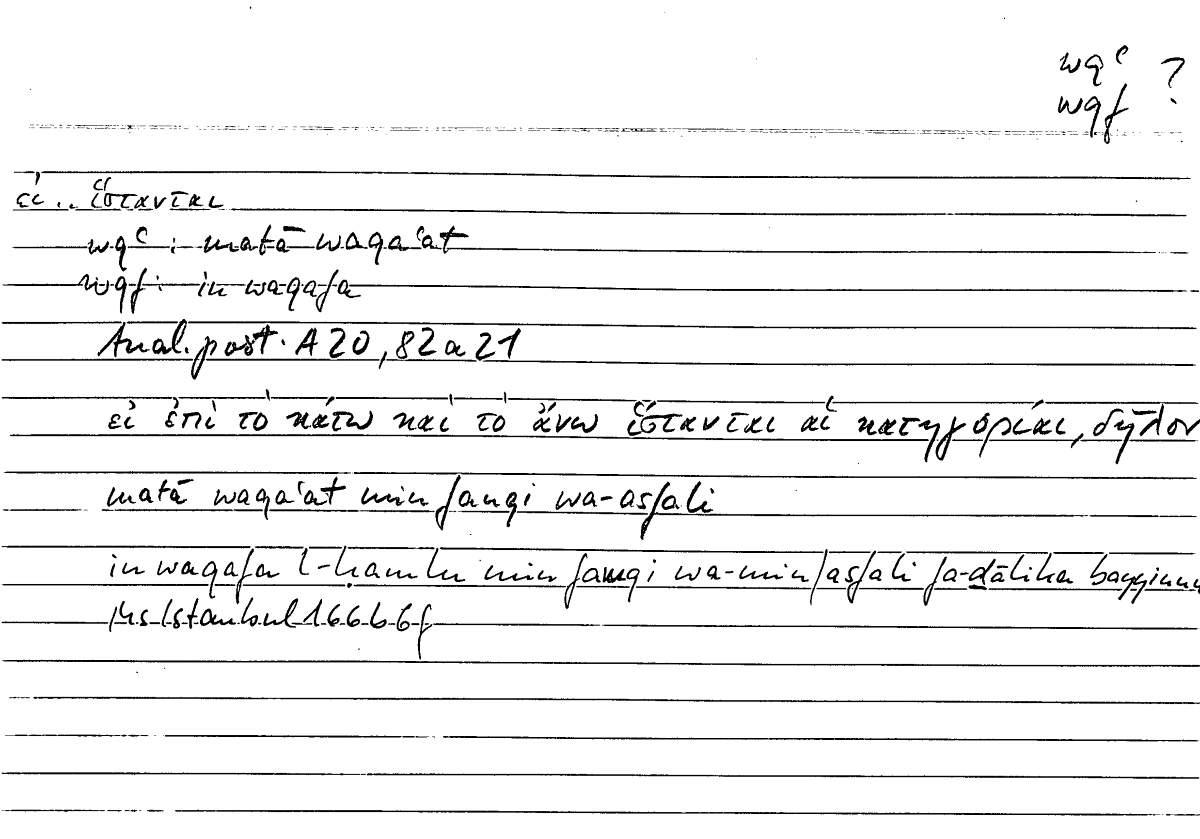 wqʿ ?
wqf
εἰ .. ἵστανται
wqʿ : matā waqaʿat
wqf : in waqafa
Anal. post. A 20, 82 a 21
εἰ ἐπὶ τὸ κάτω καὶ τὸ ἄνω ἵστανται αἱ κατηγορίαι, δῆλον
matā waqaʿat min fauqi wa-asfali
in waqafa l-ḥamlu min fauqi wa-min /asfali fa-ḏālika bayyinun
Ms Istanbul 166 b 6f